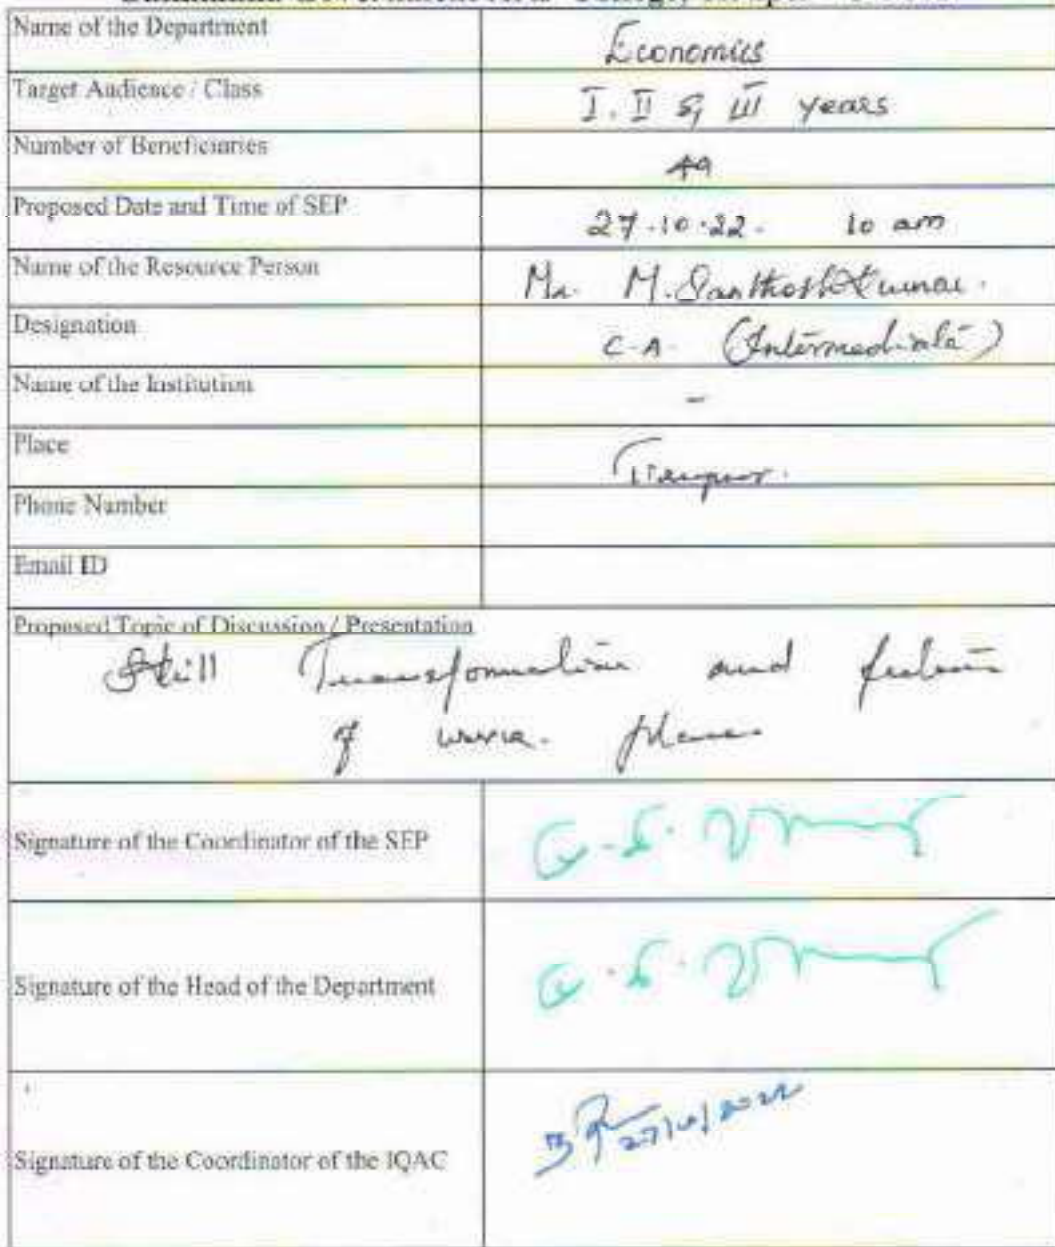 Name of the Department Economics
Target Audience / Class I. II & III years
Number of Beneficiaries 49
Proposed Date and Time of SEP 27.10.22. 10 am
Name of the Resource Person Mr. M. Santhosh Kumar.
Designation C.A. (Intermediate)
Name of the Institution -
Place Tiruppur.
Phone Number
Email ID
Proposed Topic of Discussion / Presentation
Skill Transformation and future
of work place
Signature of the Coordinator of the SEP
Signature of the Head of the Department
27/10/2022
Signature of the Coordinator of the IQAC